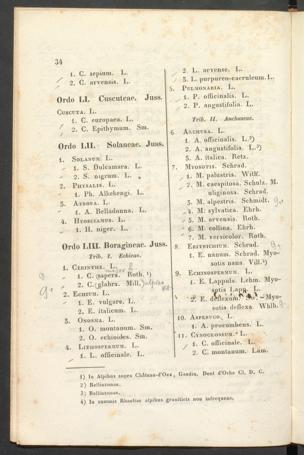 34
1. C. sepium. L.
2. C. arvensis. L.
Ordo LI. Cuscuteae. Juss.
CUSCUTA. L.
1. C. europaea. L.
2. C. Epithymum. Sm.
Ordo LII. Solaneae. Juss.
1. SOLANUM. L.
1. S. Dulcamara. L.
2. S. nigrum. L.
2. PHYSALIS. L.
1. Ph. Alkekengi. L.
3. ATROPA. L.
1. A. Belladonna. L.
4. HYOSCIAMUS. L.
1. H. niger. L.
Ordo LIII. Boragineae. Juss.
Trib. I. Echieae.
1. CERINTHE. L.
1. C. aspera. Roth. ¹)
2. C. glabra. Mill.
2. ECHIUM. L.
1. E. vulgare. L.
2. E. italicum. L.
3. ONOSMA. L.
1. O. montanum. Sm.
2. O. echioides. Sm.
4. LITHOSPERMUM. L.
1. L. officinale. L.
2. L. arvense. L.
3. L. purpureo-caeruleum. L.
5. PULMONARIA. L.
1. P. officinalis. L.
2. P. angustifolia. L.
Trib. II. Anchuseae.
6. ANCHUSA. L.
1. A. officinalis. L.²)
2. A. angustifolia. L.³)
3. A. italica. Retz.
7. MYOSOTIS. Schrad.
1. M. palustris. With.
2. M. caespitosa. Schulz. M.
uliginosa. Schrad.
3. M. alpestris. Schmidt.
4. M. sylvatica. Ehrh.
5. M. arvensis. Roth.
6. M. collina. Ehrh.
7. M. versicolor. Roth.
8. ERITRICHIUM. Schrad.
1. E. nanum. Schrad. Myo-
sotis nana. Vill.⁴)
9. ECHINOSPERMUM. L.
1. E. Lappula. Lehm. Myo-
sotis Lapp. L.
2. E. deflexum. Myo-
sotis deflexa. Whlb.
10. ASPERUGO. L.
1. A. procumbens. L.
11. CYNOGLOSSUM. L.
1. C. officinale. L.
2. C. montanum. Lam.
1) In Alpibus supra Château-d'Oex, Gaudin, Dent d'Oche Cl. D. C.
2) Bellinzonae.
3) Bellinzonae.
4) In summis Rhaetiae alpibus graniticis non infrequens.